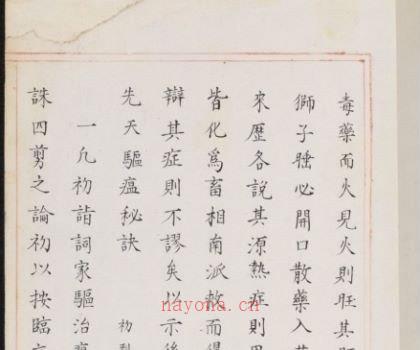 毒藥而火見火則旺其
獅子睡必開口散藥入
來歷各說其源熱症則
皆化爲畜相南派敕而得
辯其症則不謬矣以示後
先天驅瘟秘訣 初
一凡初詣詞家驅治瘟
誅四剪之論初以按臨
nayona.cn